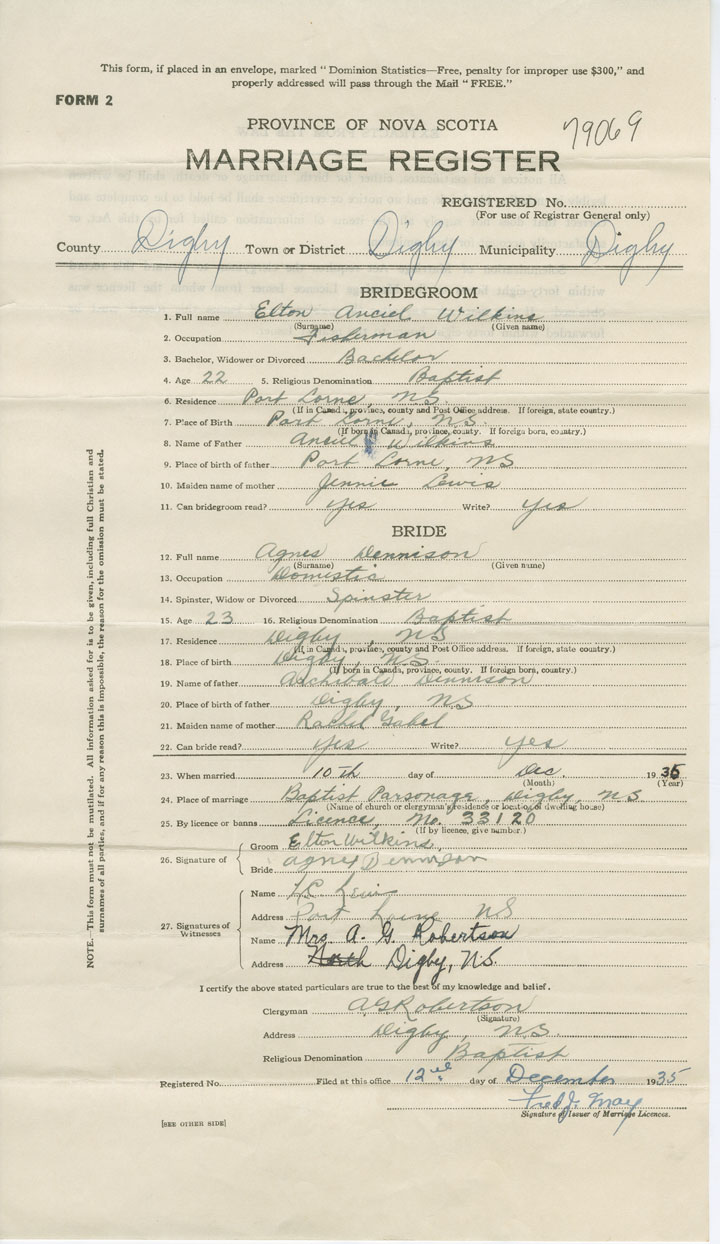 This form, if placed in an envelope, marked "Dominion Statistics—Free, penalty for improper use $300," and
properly addressed will pass through the Mail "FREE."
FORM 2
79069
PROVINCE OF NOVA SCOTIA
MARRIAGE REGISTER
REGISTERED No.
(For use of Registrar General only)
County Digby Town or District Digby Municipality Digby
BRIDEGROOM
1. Full name Elton Anciel Wilkins
(Surname) (Given name)
2. Occupation Fisherman
3. Bachelor, Widower or Divorced Bachelor
4. Age 22 5. Religious Denomination Baptist
6. Residence Port Lorne, N.S.
(If in Canada, province, county and Post Office address. If foreign, state country.)
7. Place of Birth Port Lorne, N.S.
(If born in Canada, province, county. If foreign born, country.)
8. Name of Father Anciel Wilkins
9. Place of birth of father Port Lorne, NS
10. Maiden name of mother Jennie Lewis
11. Can bridegroom read? Yes Write? Yes
BRIDE
12. Full name Agnes Dennison
(Surname) (Given name)
13. Occupation Domestic
14. Spinster, Widow or Divorced Spinster
15. Age 23 16. Religious Denomination Baptist
17. Residence Digby, NS
(If in Canada, province, county and Post Office address. If foreign, state country.)
18. Place of birth Digby, N.S.
(If born in Canada, province, county. If foreign born, country.)
19. Name of father Archibald Dennison
20. Place of birth of father Digby, NS
21. Maiden name of mother Rachel Gabel
22. Can bride read? Yes Write? Yes
23. When married 10th day of Dec. 1935
(Month) (Year)
24. Place of marriage Baptist Parsonage, Digby, N.S
(Name of church or clergyman's residence or location of dwelling house)
25. By licence or banns Licence, No. 33120
(If by licence, give number.)
26. Signature of
Groom Elton Wilkins
Bride Agnes Dennison
27. Signatures of Witnesses
Name
Address Port Lorne NS
Name Mrs. A. G. Robertson
Address Digby, N.S.
I certify the above stated particulars are true to the best of my knowledge and belief.
Clergyman A G Robertson
(Signature)
Address Digby, N.S.
Religious Denomination Baptist
Registered No. Filed at this office 12 day of December 1935
Fred J. May
Signature of Issuer of Marriage Licences.
[SEE OTHER SIDE]
NOTE.—This form must not be mutilated. All information asked for is to be given, including full Christian and
surnames of all parties, and if for any reason this is impossible, the reason for the omission must be stated.